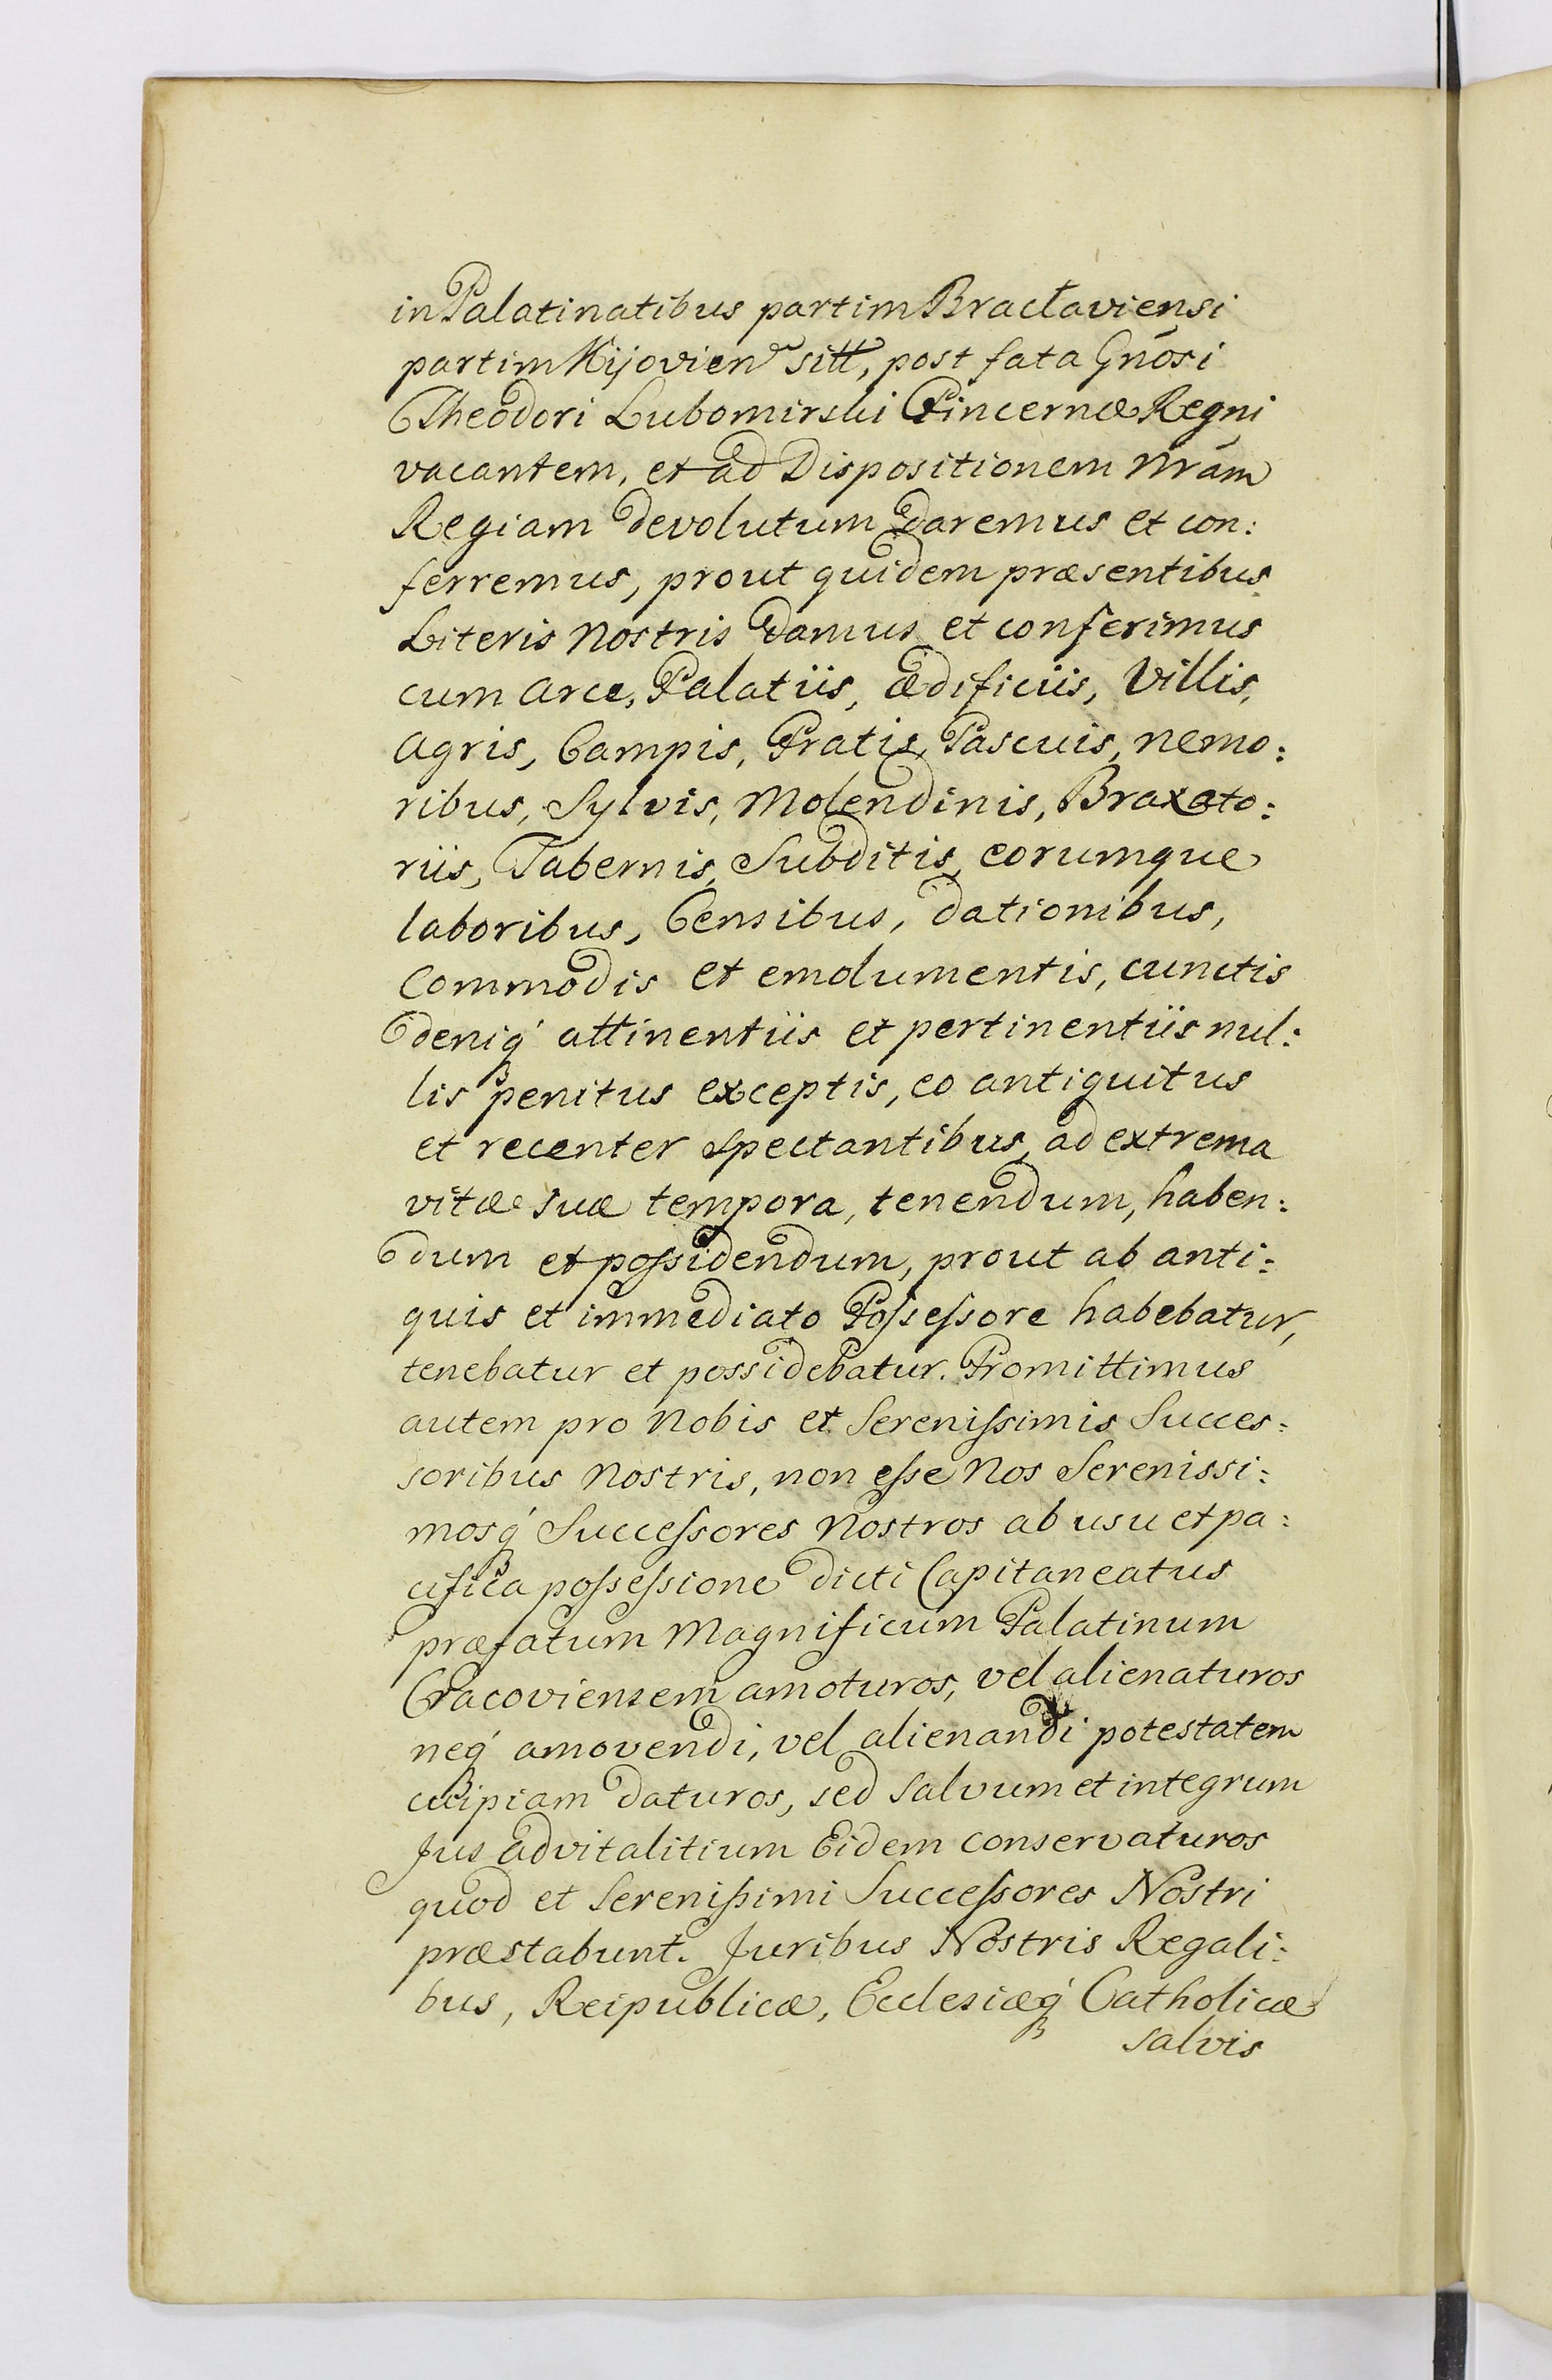 in Palatinatibus partim Braclaviensi
partim Kijovien sitt, post fata Gnosi
Theodori Lubomirski Pincernæ Regni
vacantem, et ad Dispositionem Nram
Regiam devolutum daremus et con:
ferremus, prout quidem præsentibus
Literis Nostris damus et conferimus
cum Arce, Palatiis, ædificiis, Villis,
Agris, Campis, Pratis, Pascuis, nemo:
ribus, Sylvis, Molendinis, Braxato:
riis, Tabernis, Subditis, eorumque
laboribus, Censibus, dationibus,
Commodis et emolumentis, cunctis
deniq́ attinentiis et pertinentiis nul:
lis penitus exceptis, eo antiquitus
et recenter spectantibus, ad extrema
vitæ suæ tempora, tenendum, haben:
dum et poſsidendum, prout ab anti:
quis et immediato Poſseſsore habebatur,
tenebatur et possidebatur. Promittimus
autem pro Nobis et Sereniſsimis Succes:
soribus Nostris, non eſse Nos Serenissi:
mosq́ Succeſsores Nostros ab usu et pa:
cifica poſseſsione dicti Capitaneatus
præfatum Magnificum Palatinum
Cracoviensem amoturos, vel alienaturos
neq́ amovendi, vel alienandi potestatem
cuipiam daturos, sed salvum et integrum
Jus advitalitium Eidem conservaturos
quod et Sereniſsimi Succeſsores Nostri
præstabunt. Juribus Nostris Regali:
bus, Reipublicæ, Ecclesiæq́ Catholicæ
salvis